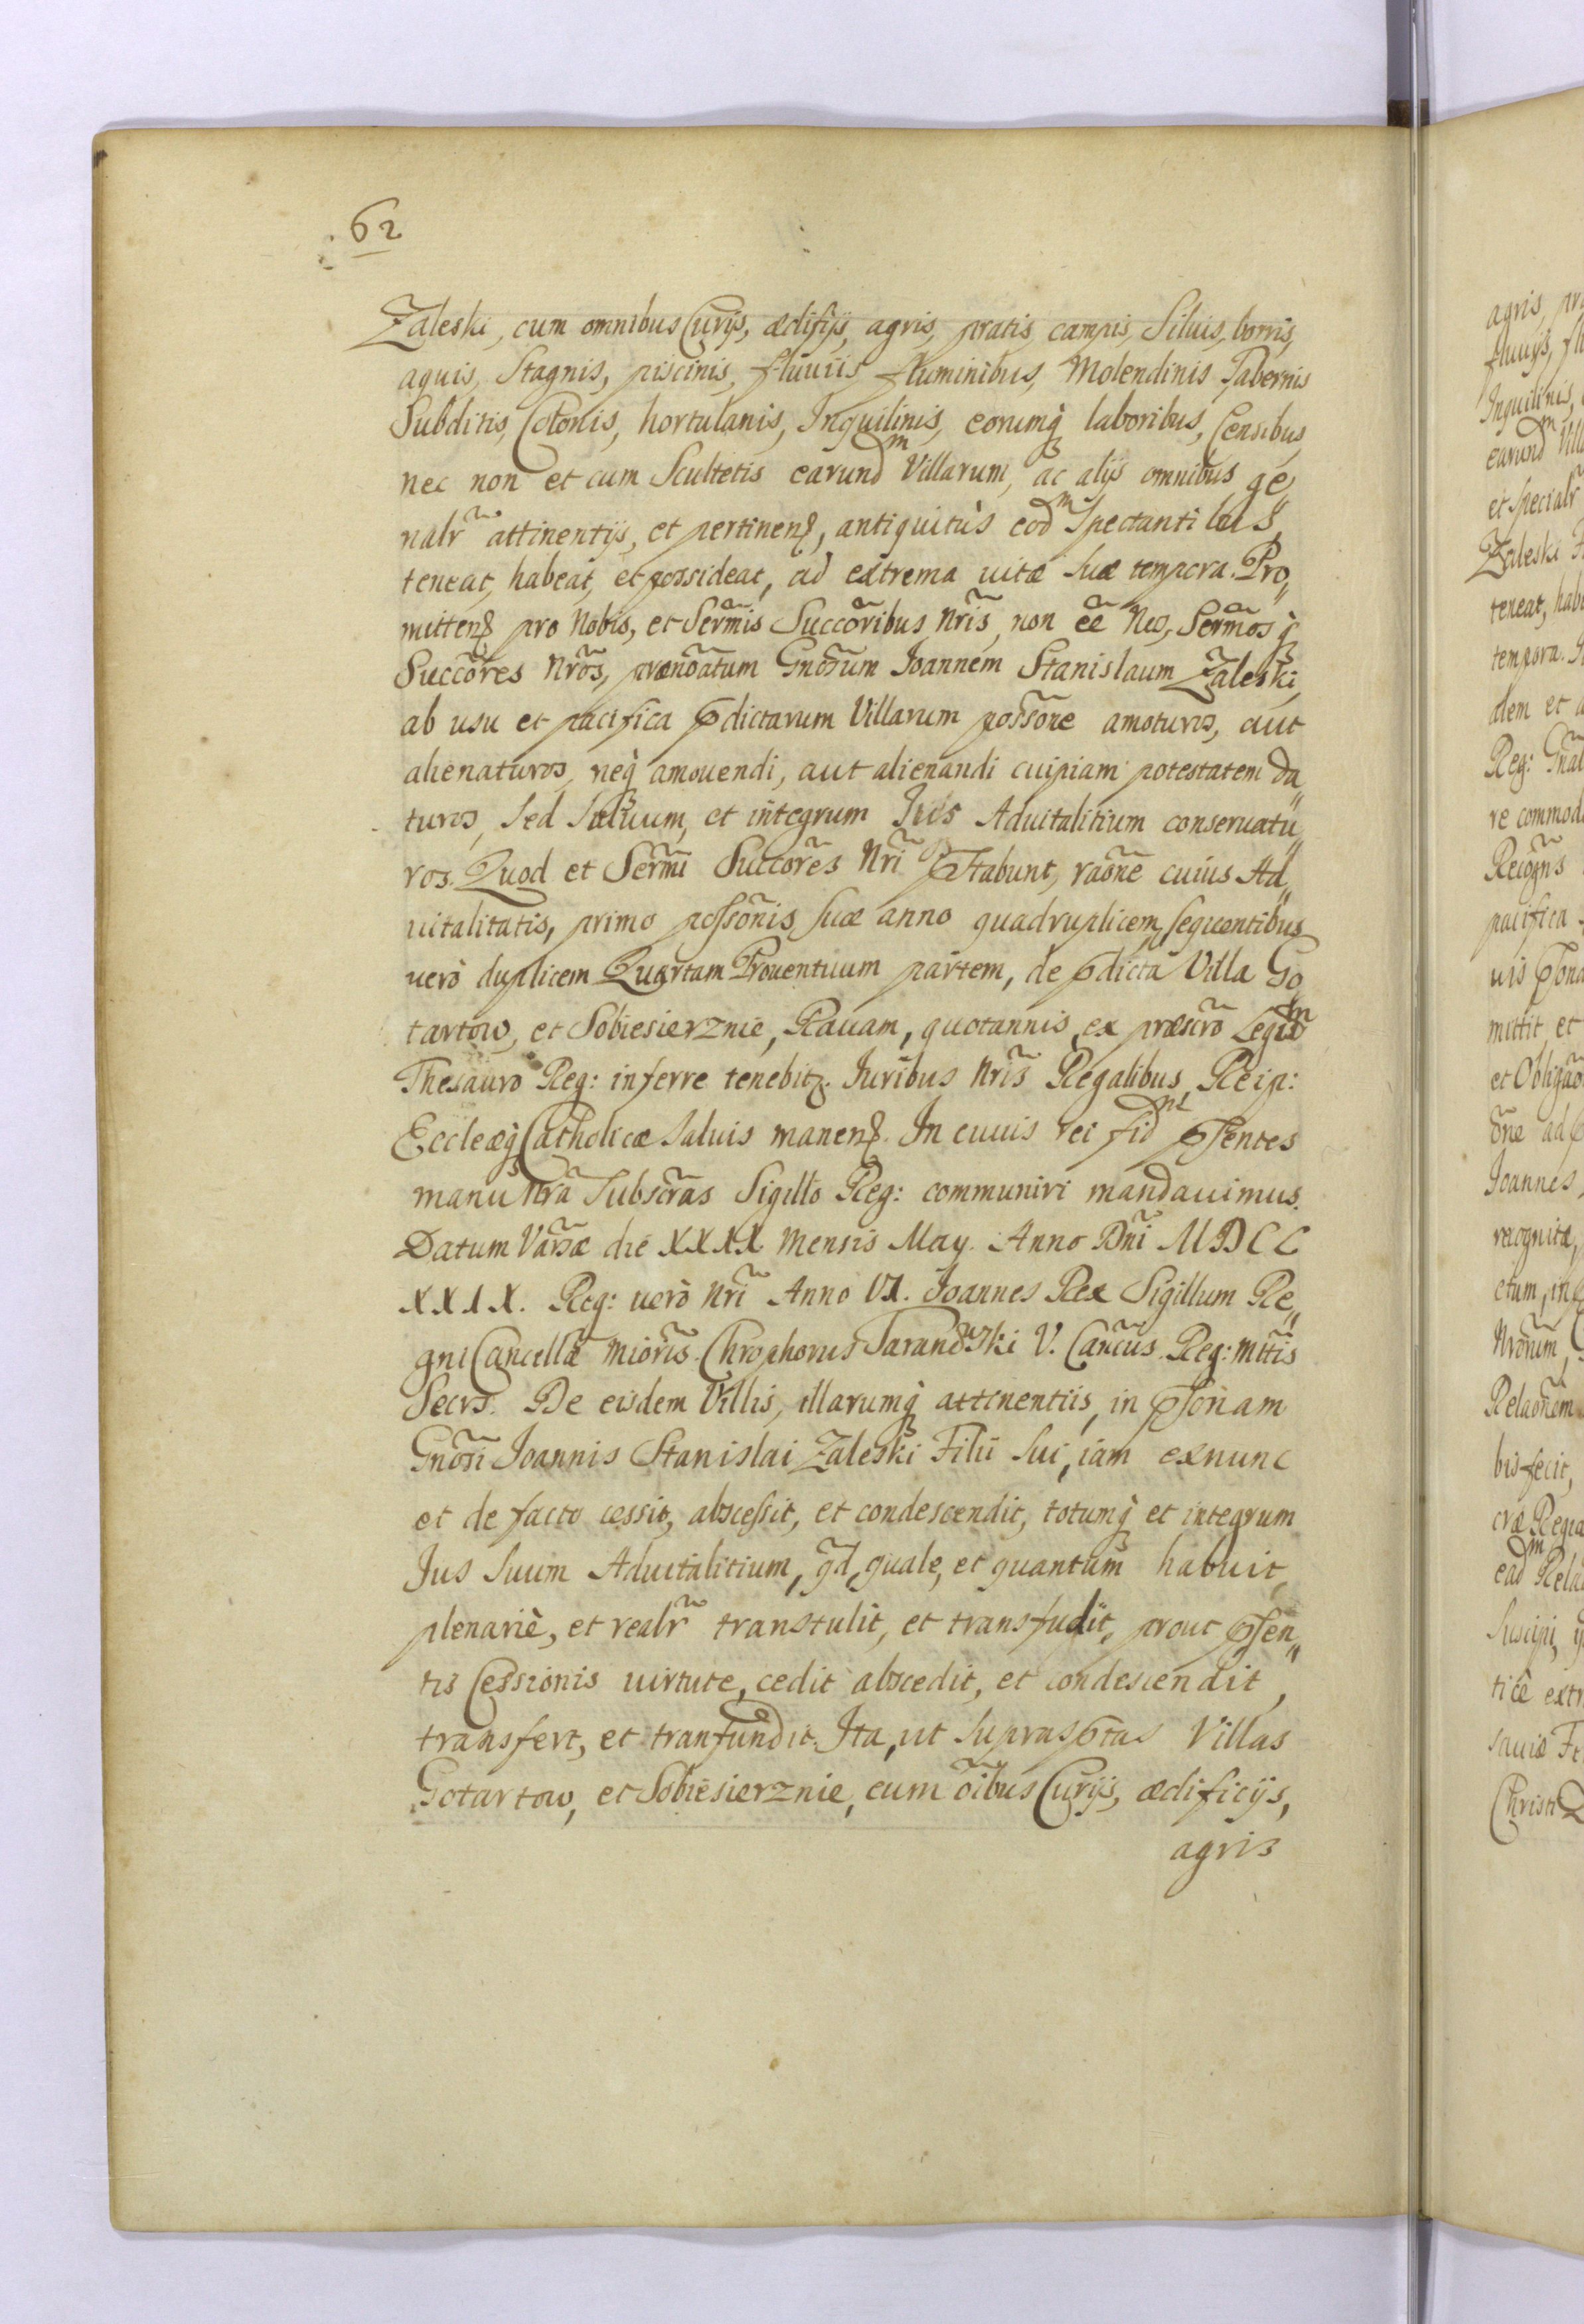 62
Zaleski, cum omnibus Curijs, ædifijs, agris, pratis, campis, Siluis, borris,
aquis, Stagnis, piscinis, fluuiis fluminibus, Molendinis Tabernis
Subditis, Colonis, hortulanis, Inquilinis, eorumq̀ʒ laboribus, Censibus,
nec non et cum Scultetis earundᵐ Villarum, ac alijs omnibus ge„
nalr̃ attinentijs, et pertinenꝭ, antiquitùs eodᵐ Spectantibus,
teneat, habeat, et possideat, ad extrema uitæ suæ tempora. Pro„
mittenꝭ pro Nobis, et Serm̃is Succõribus Nr̃is, non ẽe Nos, Serm̃osq̀ʒ
Succõres Nr̃os, prænõatum Gnõsum Joannem Stanislaum Zaleski,
ab usu et pacifica p̃dictarum Villarum possõne amoturos, aut
alienaturos, neq̀ʒ amouendi, aut alienandi cuipiam potestatem da„
turos, Sed Saluum, et integrum Jus Aduitalitium conseruatu„
ros. Quod et Serm̃i Succõres Nr̃i p̃stabunt, raõne cuius Ad„
uitalitatis, primo possõnis suæ anno quadruplicem, sequentibus
uerò duplicem Quartam Prouentuum partem, de p̃dicta Villa Go„
tartow, et Sobiesierznie, Rauam, quotannis, ex præscro Legũm
Thesauro Reg: inferre tenebitʒ. Juribus Nr̃is Regalibus, Reip:
Eccleæq̀ʒ Catholicæ saluis manenꝭ. In cuuis rei fidᵐ p̃sentes
manu Nr̃a subscr̃as Sigillo Reg: communiri mandauimus.
Datum Vars̃æ die XXIX Mensis May. Anno Dñi MDCC
XXIX. Reg: uerò Nr̃i Anno VI. Joannes Rex Sigillum Re„
gni Cancellæ Mioris̃. Chrophorus Tarandwski V. Canc̃us. Reg: Mttis̃
Secrs. De eisdem Villis, illarumq̀ʒ attinentiis, in p̃sonam
Gnõsi Joannis Stanislai Zaleski Filii sui, iam exnunc
et de facto cessit, abscessit, et condescendit, totumq̀ʒ et integrum
Jus suum Aduitalitium, qd, quale, et quantum habuit,
plenariè, et realr̃ transtulit, et transfudit, prout p̃sen„
tis Cessionis uirtute, cedit abscedit, et condescendit,
transfert, et tranfundit. Ita, ut suprasp̃tas Villas
Gotartow, et Sobiesierznie, cum õibus Curijs, ædificijs,
agris